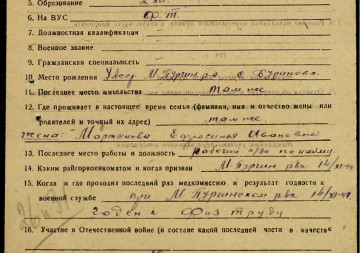 5. Образование
6. На ВУС Ф.Т.
7. Должностная квалификация
8. Военное звание
9. Гражданская специальность
10. Место рождения Удсср М. Пургин. р-н с. Бураново.
11. Последнее место жительства там же
12. Где проживает в настоящее время семья (фамилия, имя и отчество жены или
родителей и точный их адрес) там же
жена: Мартынова Евфросинья Ивановна
13. Последнее место работы и должность рабочий по найму
14. Каким райгорвоенкоматом и когда призван М. Пургин рвк 14/XI-41
15. Когда и где проходил последний раз медкомиссию и результат годности к
военной службе при М. Пургинском рвк 14/XI-41
годен к физ труду
16. Участие в Отечественной войне (в составе какой последней части в качестве